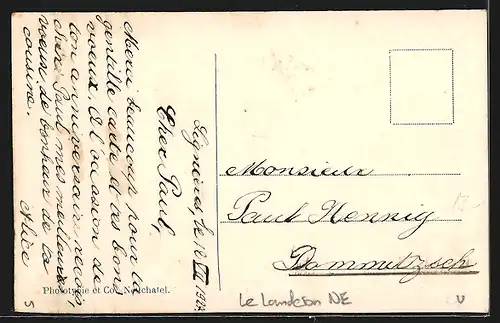 Lignières, le 12 VII 1920
Cher Paul,
Merci beaucoup pour ta
gentille carte et tes bons
voeux. A l'occasion de
ton anniversaire reçois,
cher Paul mes meilleurs
voeux de bonheur de ta
cousine.
Alice
Monsieur
Paul Hennig
Dommitzsch
Phototypie et Co., Neuchatel.
Le Landeron NE